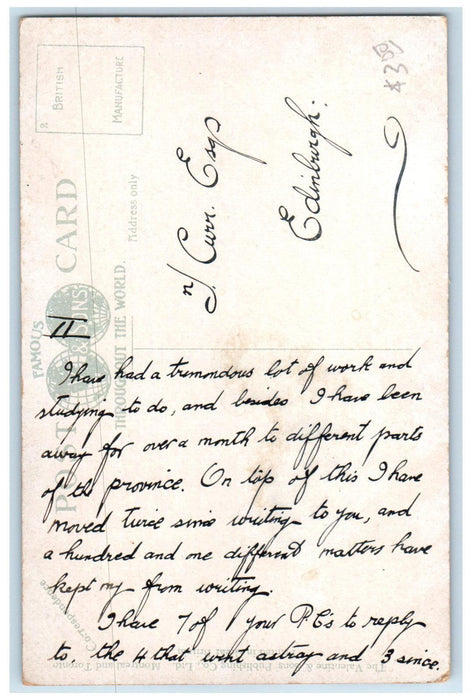 II
I have had a tremondous lot of work and
studying to do, and besides I have been
away for over a month to different parts
of the province. On top of this I have
moved twice since writing to you, and
a hundred and one different matters have
kept my from writing.
I have 7 of your P.C's to reply
to the 4 that went astray and 3 since.
J. Curr. Esq
Edinburgh.
POST CARD
FAMOUS
THROUGHOUT THE WORLD.
& SONS
Address only
BRITISH
MANUFACTURE
Correspondence
The Valentine & Sons Publishing Co., Ltd., Montreal and Toronto